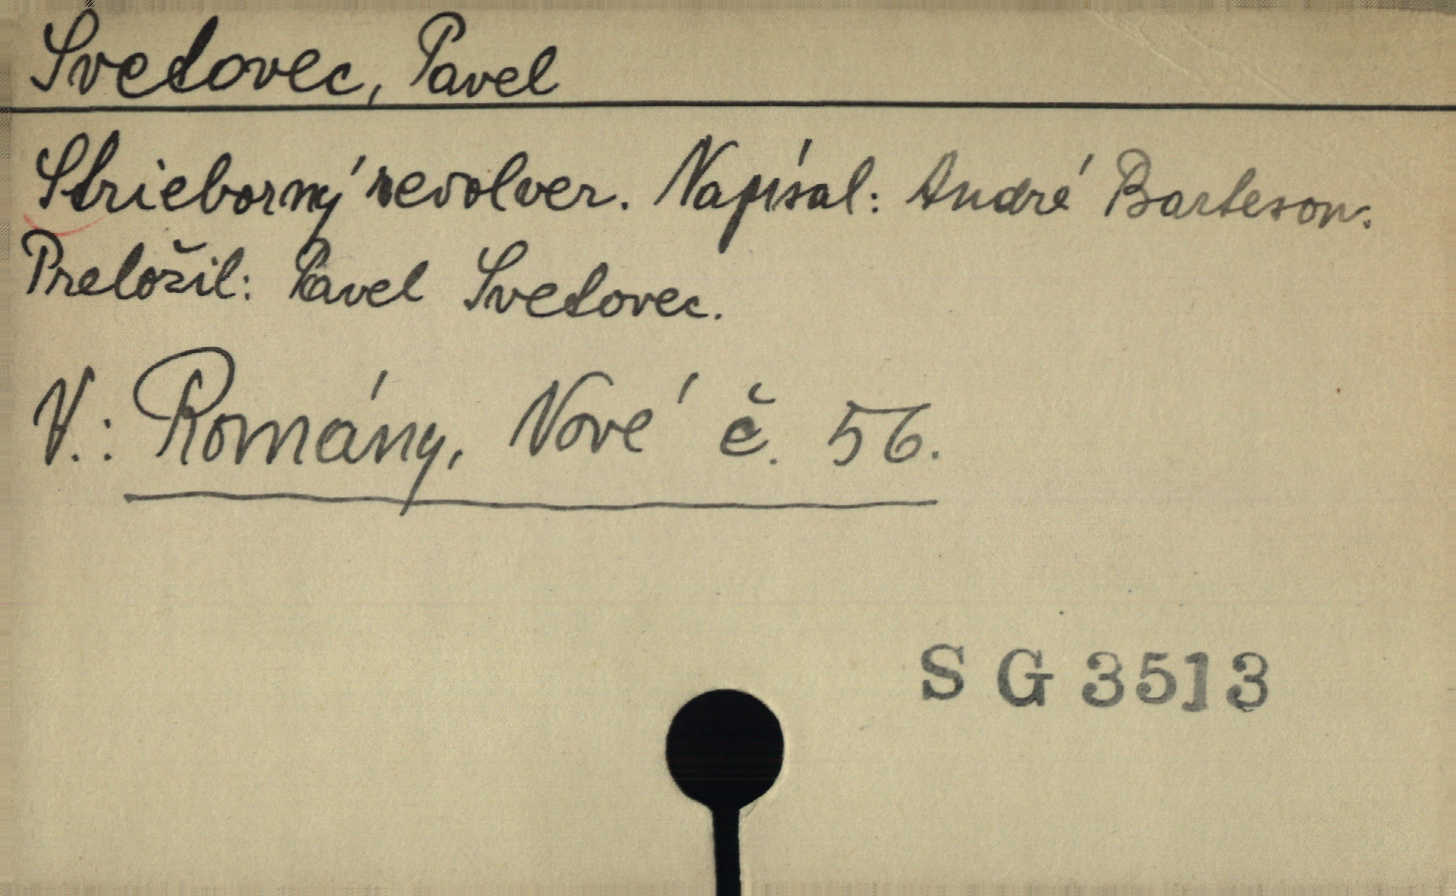 Svetovec, Pavel
Strieborný revolver. Napísal: André Barteson.
Preložil: Pavel Svetovec.
V.: Romány, Nové č. 56.
S G 3513